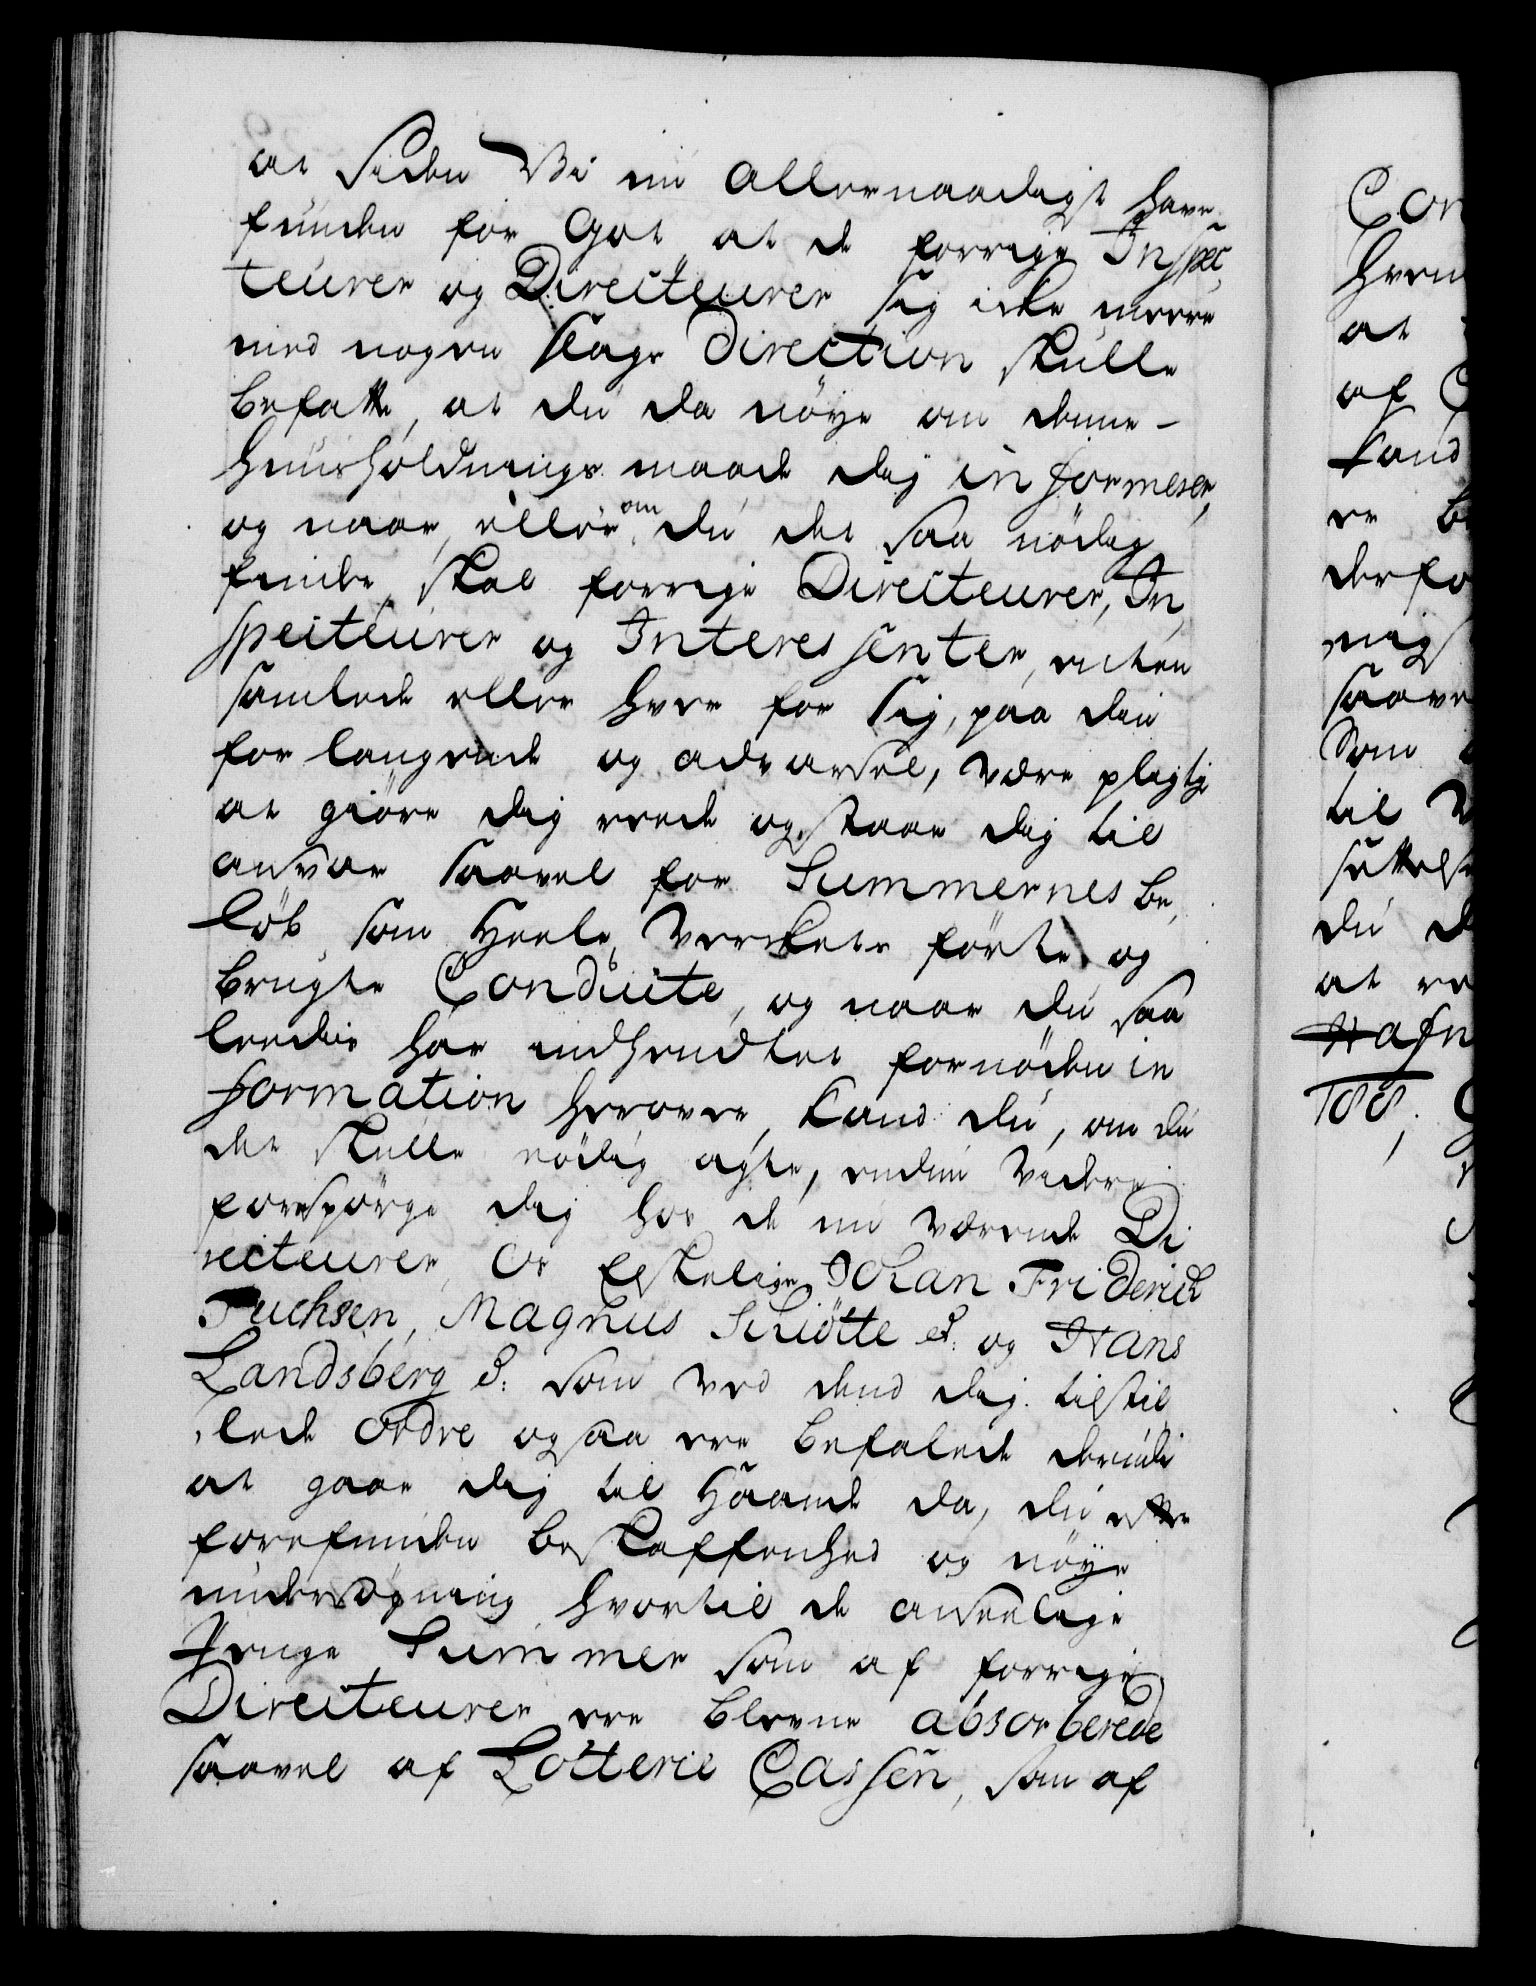 at siden Vi nu allernaadigst have
funden for Got at de forrige Inspec,
teurer og Directeurer sig icke meere
med nogen slags Direction skulle
befatte, at du da nöye om denne
Huusholdnings maade dig informerer,
og naar, eller om du det saa nödig
finder, skal forrige Directeurer, In,
specteurer og Interessenter, enten
samlede eller hver for sig, paa din
forlangende og advarsel, være pligtig
at giöre dig reede og staae dig til
ansvar saavel for Summernes be,
löb, som Heele Verckets förte og
brugte Conduite, og naar du saa
leedes har indhendtet fornöden in
formation herover, kand du, om du
det skulle nödig agte, endnu videre
forespörge dig hos de nu værende Di
recteurer, Os Elskelige Johan Friderich
Fuchsen, Magnus Schiötte S. og Hans
Landsberg S: som ved dend dig tilstil
lede Ordre ogsaa ere befalede derudi
at gaae dig til Haande da, du efter
forefunden beskaffenhed og nöye
undersögning hvortil de anseelige
Penge Summer som af forrige
Directeurer ere blevne absorberede
saavel af Lotterie Cassen, som af
Con
at
af
kand
derfo
saave
Som
til V
du d
at
Hafn